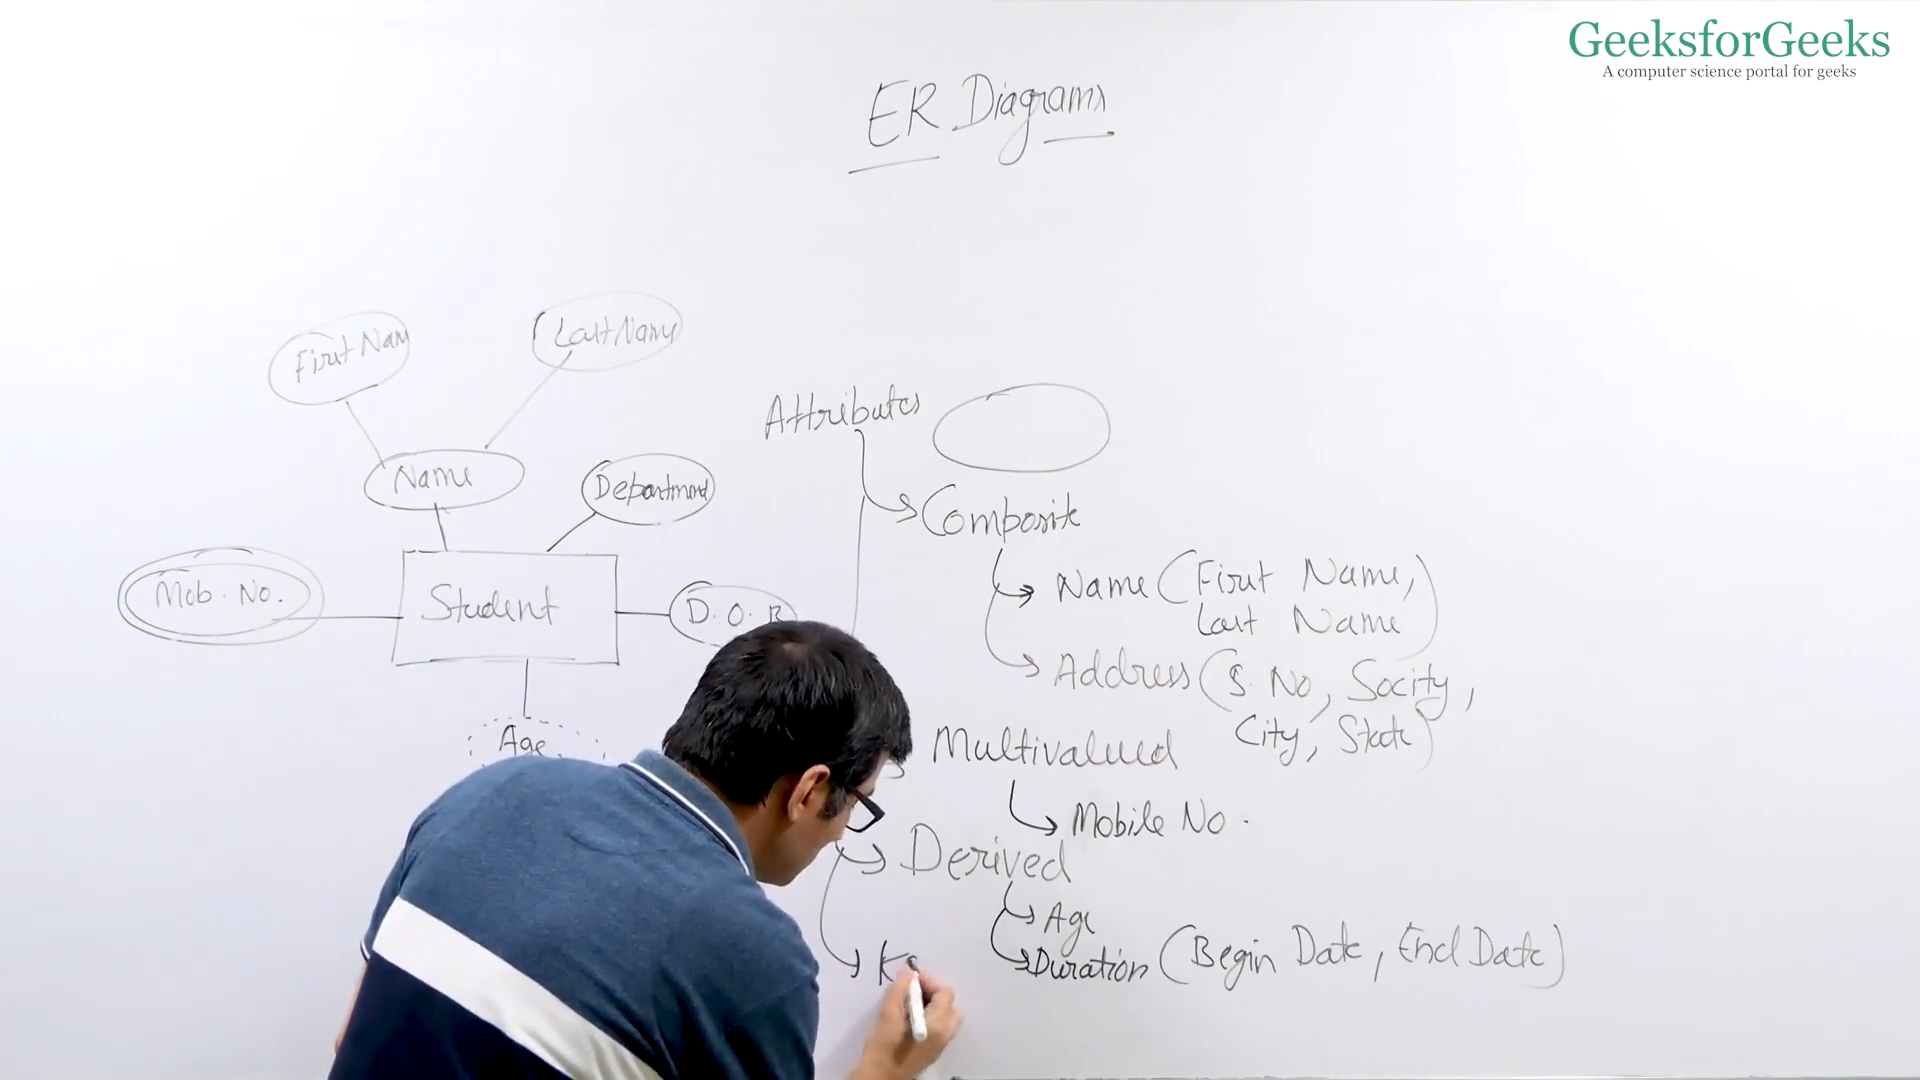 GeeksforGeeks
A computer science portal for geeks
ER Diagrams
First Nam
Last Name
Name
Department
Mob. No.
Student
D.O.B
Age
Attributes
Composite
Name (First Name,
Last Name)
Address (S. No, Socity,
City, State)
Multivalued
Mobile No.
Derived
Age
Duration (Begin Date, End Date)
Ke